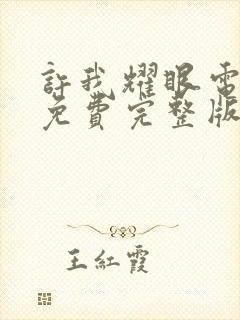 許我耀眼電
免費完整版
王紅霞